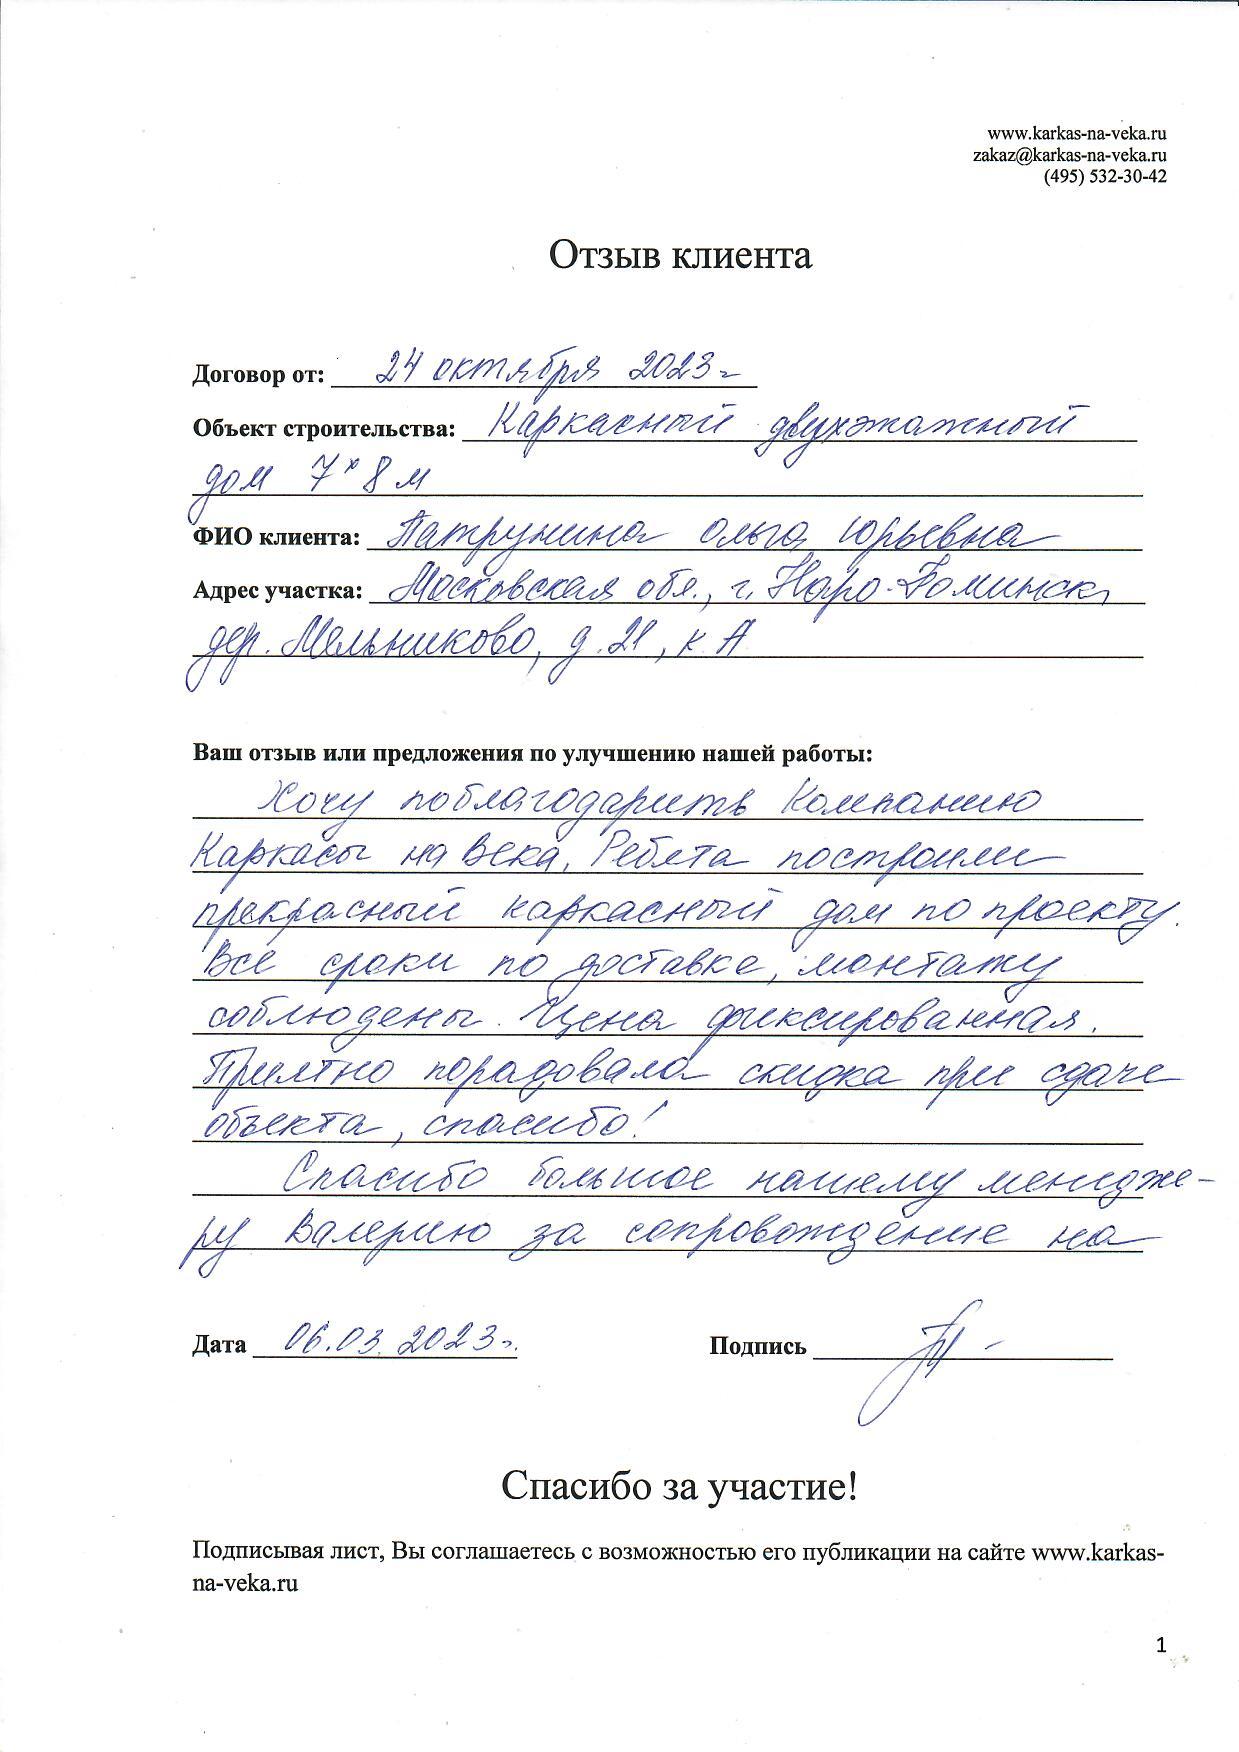 www.karkas-na-veka.ru
zakaz@karkas-na-veka.ru
(495) 532-30-42
Отзыв клиента
Договор от: 24 октября 2023 г
Объект строительства: Каркасный двухэтажный
дом 7х8 м
ФИО клиента: Патрунина Ольга Юрьевна
Адрес участка: Московская обл., г. Наро-Фоминск,
дер. Мельниково, д. 21, к. А
Ваш отзыв или предложения по улучшению нашей работы:
Хочу поблагодарить Компанию
Каркасы на Века. Ребята построили
прекрасный каркасный дом по проекту.
Все сроки по доставке, монтажу
соблюдены. Цена фиксированная.
Приятно порадовала скидка при сдаче
объекта, спасибо!
Спасибо большое нашему менедже-
ру Валерию за сопровождение на
Дата 06.03.2023 г. Подпись
Спасибо за участие!
Подписывая лист, Вы соглашаетесь с возможностью его публикации на сайте www.karkas-
na-veka.ru
1